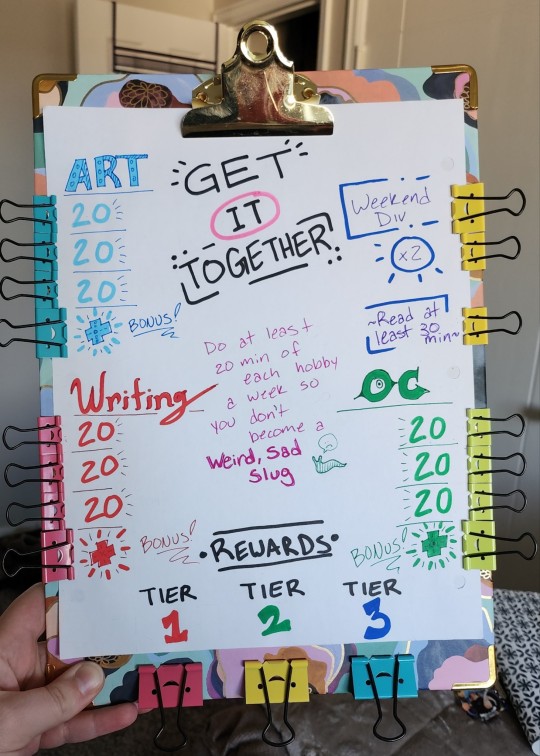 GET
IT
TOGETHER
ART
20
20
20
BONUS!
Weekend
Div
x2
~Read at
least 30
min~
Do at least
20 min of
each hobby
a week so
you don't
become a
Weird, Sad
Slug
Writing
20
20
20
BONUS!
OC
20
20
20
BONUS!
•REWARDS•
TIER
1
TIER
2
TIER
3